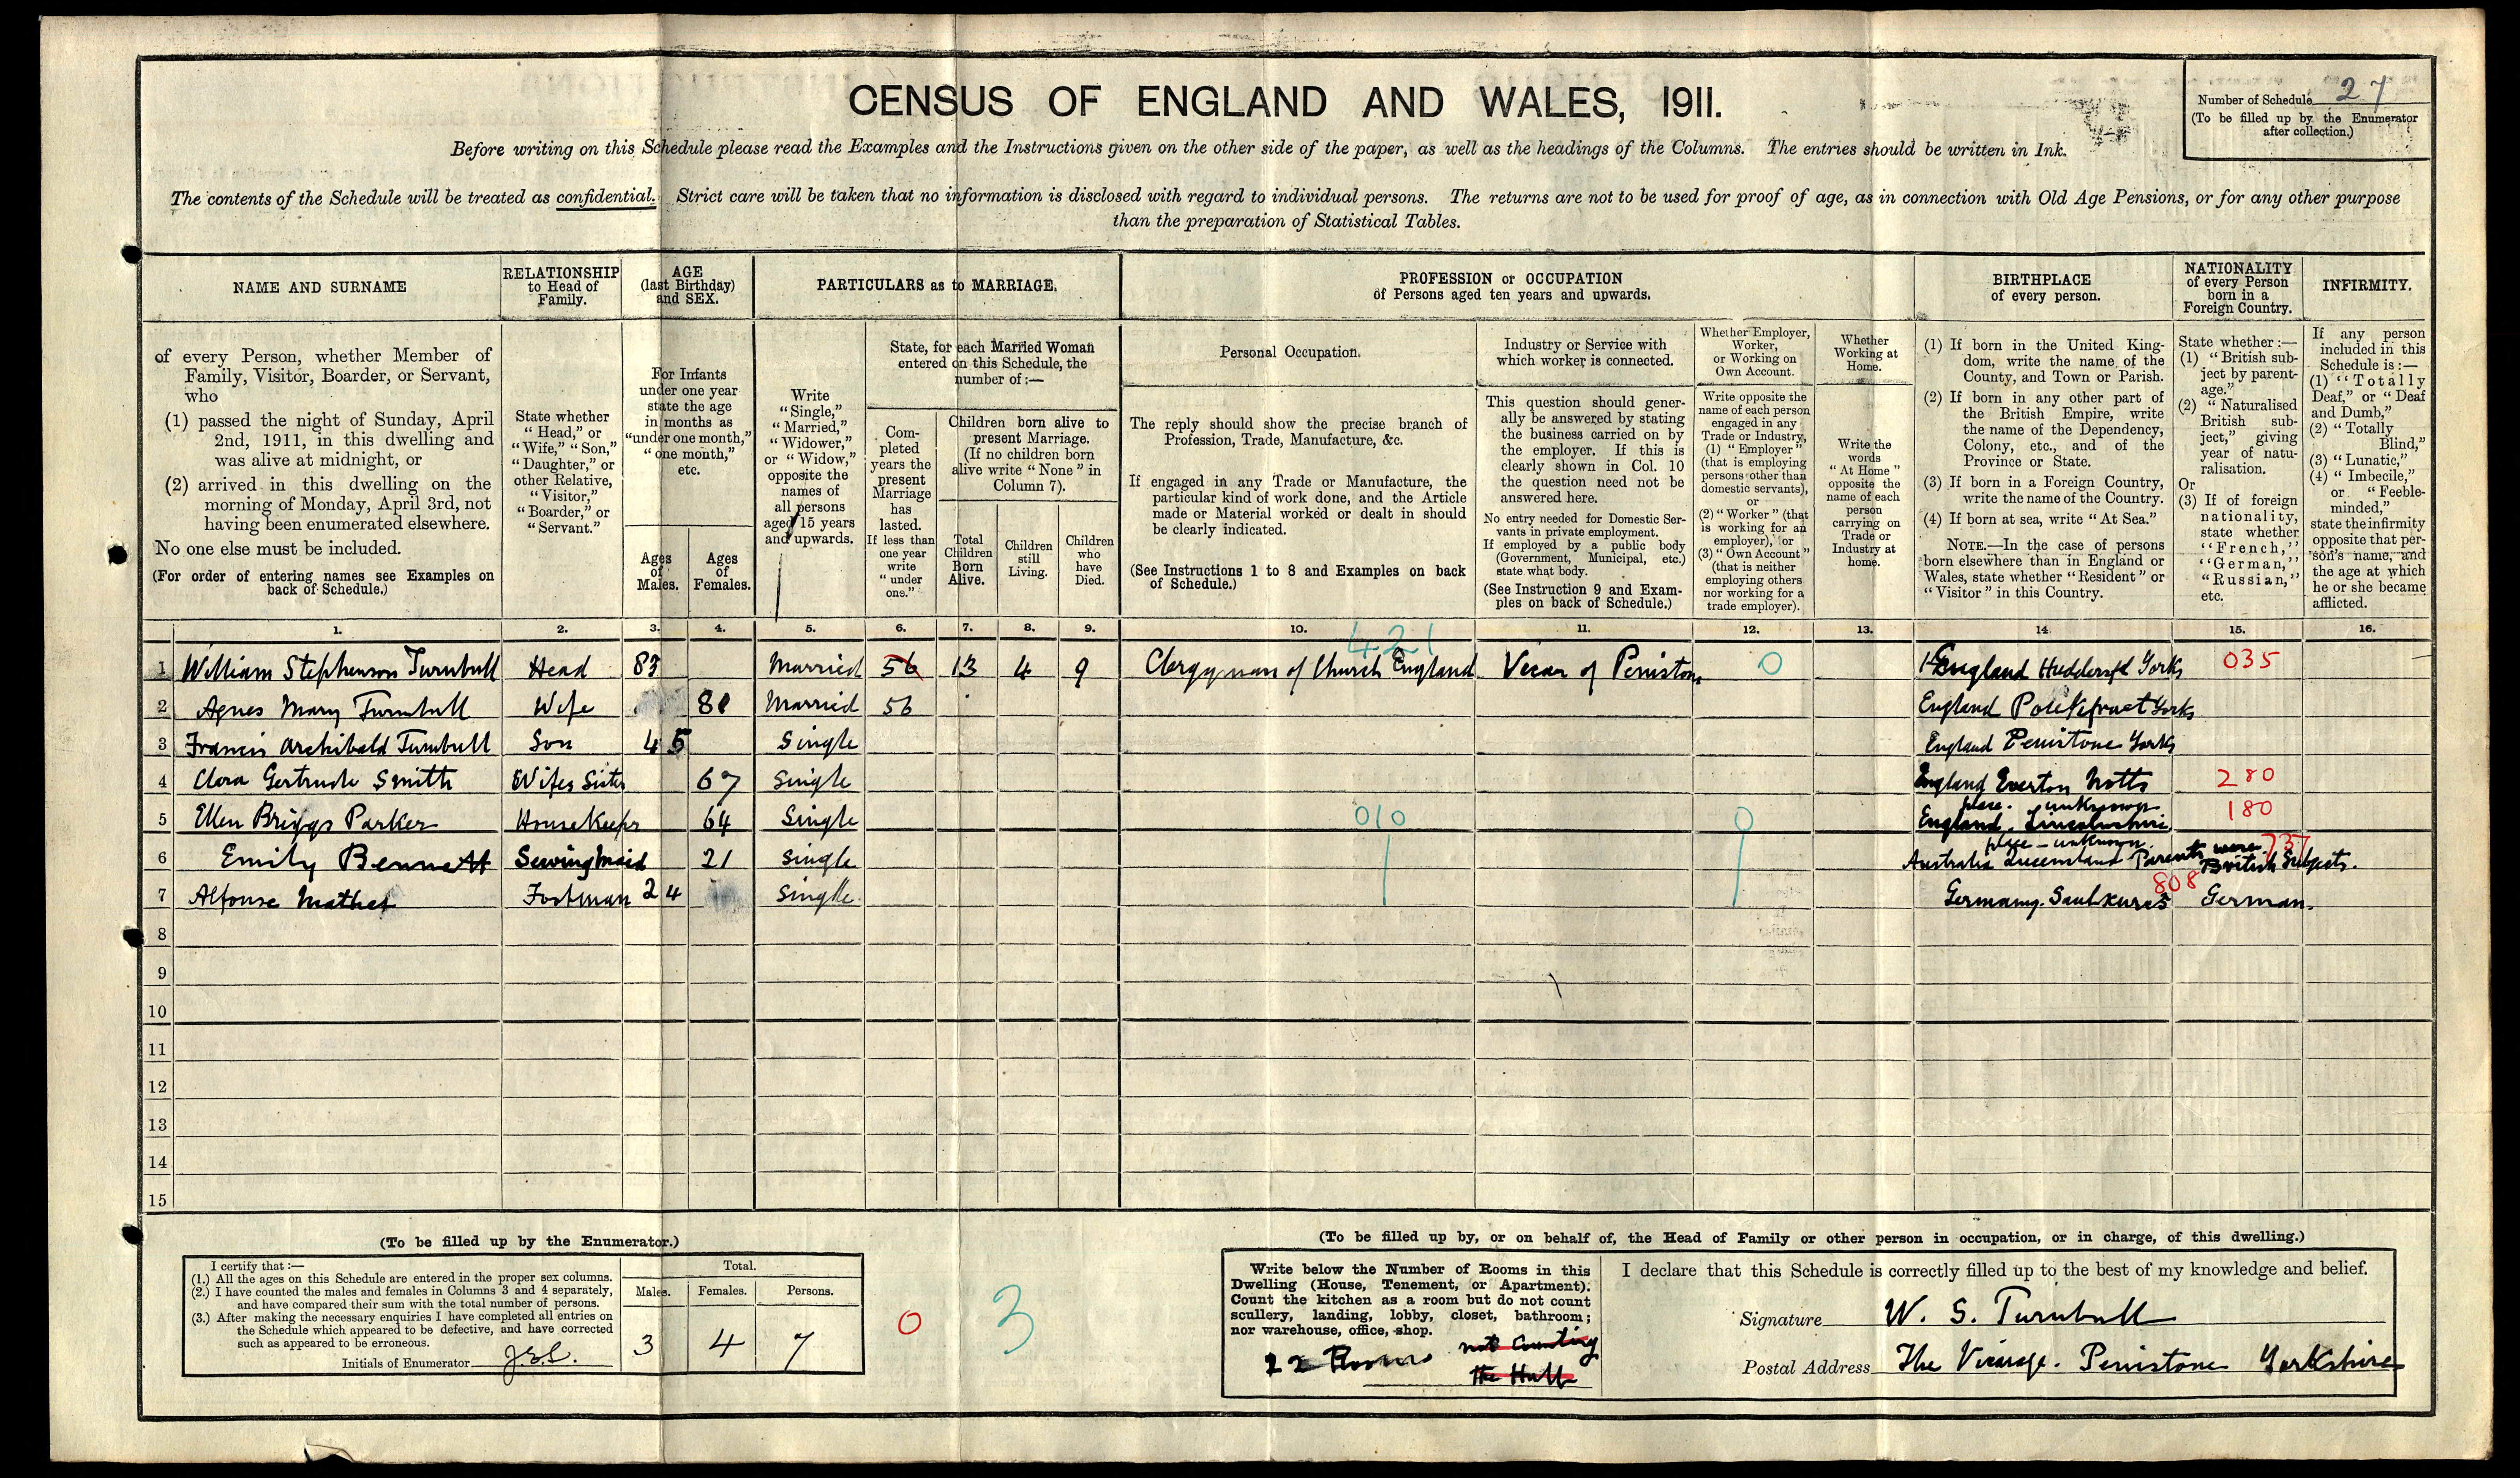 CENSUS OF ENGLAND AND WALES, 1911.
Number of Schedule 27
(To be filled up by the Enumerator
after collection.)
Before writing on this Schedule please read the Examples and the Instructions given on the other side of the paper, as well as the headings of the Columns. The entries should be written in Ink.
The contents of the Schedule will be treated as confidential. Strict care will be taken that no information is disclosed with regard to individual persons. The returns are not to be used for proof of age, as in connection with Old Age Pensions, or for any other purpose
than the preparation of Statistical Tables.
NAME AND SURNAME
RELATIONSHIP
to Head of
Family.
AGE
(last Birthday)
and SEX.
PARTICULARS as to MARRIAGE.
PROFESSION or OCCUPATION
of Persons aged ten years and upwards.
BIRTHPLACE
of every person.
NATIONALITY
of every Person
born in a
Foreign Country.
INFIRMITY.
of every Person, whether Member of
Family, Visitor, Boarder, or Servant,
who
(1) passed the night of Sunday, April
2nd, 1911, in this dwelling and
was alive at midnight, or
(2) arrived in this dwelling on the
morning of Monday, April 3rd, not
having been enumerated elsewhere.
No one else must be included.
(For order of entering names see Examples on
back of Schedule.)
State whether
"Head," or
"Wife," "Son,"
"Daughter," or
other Relative,
"Visitor,"
"Boarder," or
"Servant."
For Infants
under one year
state the age
in months as
"under one month,"
"one month,"
etc.
Ages
of
Males.
Ages
of
Females.
Write
"Single,"
"Married,"
"Widower,"
or "Widow,"
opposite the
names of
all persons
aged 15 years
and upwards.
State, for each Married Woman
entered on this Schedule, the
number of:—
Com-
pleted
years the
present
Marriage
has
lasted.
If less than
one year
write
"under
one."
Children born alive to
present Marriage.
(If no children born
alive write "None" in
Column 7).
Total
Children
Born
Alive.
Children
still
Living.
Children
who
have
Died.
Personal Occupation.
The reply should show the precise branch of
Profession, Trade, Manufacture, &c.
If engaged in any Trade or Manufacture, the
particular kind of work done, and the Article
made or Material worked or dealt in should
be clearly indicated.
(See Instructions 1 to 8 and Examples on back
of Schedule.)
Industry or Service with
which worker is connected.
This question should gener-
ally be answered by stating
the business carried on by
the employer. If this is
clearly shown in Col. 10
the question need not be
answered here.
No entry needed for Domestic Ser-
vants in private employment.
If employed by a public body
(Government, Municipal, etc.)
state what body.
(See Instruction 9 and Exam-
ples on back of Schedule.)
Whether Employer,
Worker,
or Working on
Own Account.
Write opposite the
name of each person
engaged in any
Trade or Industry,
(1) "Employer"
(that is employing
persons other than
domestic servants),
or
(2) "Worker" (that
is working for an
employer), or
(3) "Own Account"
(that is neither
employing others
nor working for a
trade employer).
Whether
Working at
Home.
Write the
words
"At Home"
opposite the
name of each
person
carrying on
Trade or
Industry at
home.
(1) If born in the United King-
dom, write the name of the
County, and Town or Parish.
(2) If born in any other part of
the British Empire, write
the name of the Dependency,
Colony, etc., and of the
Province or State.
(3) If born in a Foreign Country,
write the name of the Country.
(4) If born at sea, write "At Sea."
NOTE.—In the case of persons
born elsewhere than in England or
Wales, state whether "Resident" or
"Visitor" in this Country.
State whether:—
(1) "British sub-
ject by parent-
age."
(2) "Naturalised
British sub-
ject," giving
year of natu-
ralisation.
Or
(3) If of foreign
nationality,
state whether
"French,"
"German,"
"Russian,"
etc.
If any person
included in this
Schedule is:—
(1) "Totally
Deaf," or "Deaf
and Dumb,"
(2) "Totally
Blind,"
(3) "Lunatic,"
(4) "Imbecile,"
or "Feeble-
minded,"
state the infirmity
opposite that per-
son's name, and
the age at which
he or she became
afflicted.
1. 2. 3. 4. 5. 6. 7. 8. 9. 10. 11. 12. 13. 14. 15. 16.
421
1 William Stephenson Turnbull Head 83 Married 56 13 4 9 Clergyman of Church England Vicar of Penistone 0 England Huddersfd Yorks 035
2 Agnes Mary Turnbull Wife 81 Married 56 England Pontefract Yorks
3 Francis Archibald Turnbull Son 45 Single England Penistone Yorks
4 Clara Gertrude Smith Wifes Sister 67 Single England Everton Notts 280
place unknown
5 Ellen Briggs Parker HouseKeeper 64 Single 010 0 England. Lincolnshire 180
place – unknown
6 Emily Bennett Sewing Maid 21 Single Australia Queensland Parents were British Subjects. 737
7 Alfonse Mathes Footman 24 Single Germany. 808 German.
8
9
10
11
12
13
14
15
(To be filled up by the Enumerator.)
I certify that:—
(1.) All the ages on this Schedule are entered in the proper sex columns.
(2.) I have counted the males and females in Columns 3 and 4 separately,
and have compared their sum with the total number of persons.
(3.) After making the necessary enquiries I have completed all entries on
the Schedule which appeared to be defective, and have corrected
such as appeared to be erroneous.
Initials of Enumerator
Total.
Males. Females. Persons.
3 4 7
0 3
(To be filled up by, or on behalf of, the Head of Family or other person in occupation, or in charge, of this dwelling.)
Write below the Number of Rooms in this
Dwelling (House, Tenement, or Apartment).
Count the kitchen as a room but do not count
scullery, landing, lobby, closet, bathroom;
nor warehouse, office, shop.
22 Rooms not Counting
the Hall
I declare that this Schedule is correctly filled up to the best of my knowledge and belief.
Signature W. S. Turnbull
Postal Address The Vicarage. Penistone Yorkshire